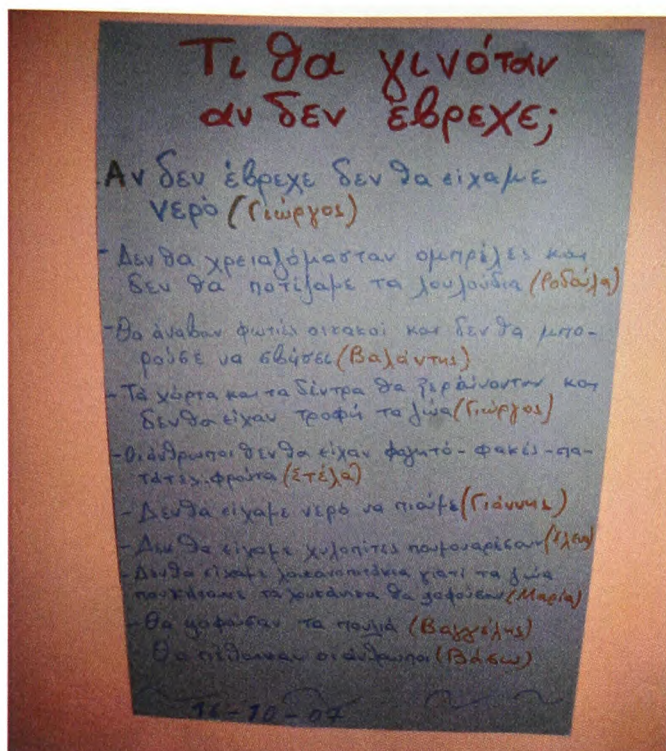 Τι θα γινόταν
αν δεν έβρεχε;
Αν δεν έβρεχε δεν θα είχαμε
νερό (Γιώργος)
- Δεν θα χρειαζόμασταν ομπρέλες και
δεν θα ποτίζαμε τα λουλούδια (Ροδούλα)
- Θα άναβαν φωτιές οι κακοί και δεν θα μπο-
ρούσε να σβήσει (Βαλάντης)
- Τα χόρτα και τα δέντρα θα ξεραίνονταν και
δεν θα είχαν τροφή τα ζώα (Γιώργος)
- Οι άνθρωποι δεν θα είχαν φαγητό - φακές - πα-
τάτες. φρούτα (Στέλα)
- Δεν θα είχαμε νερό να πιούμε (Γιάννης)
- Δεν θα είχαμε χυλοπίτες που μου αρέσουν (Ελένη)
- Δεν θα είχαμε λουκανοπιτάκια γιατί τα ζώα
που κάνουμε τα λουκάνικα θα ψοφούσαν (Μαρία)
- Θα ψοφούσαν τα πουλιά (Βαγγέλης)
Θα πέθαιναν οι άνθρωποι (Βάσω)
16-10-07